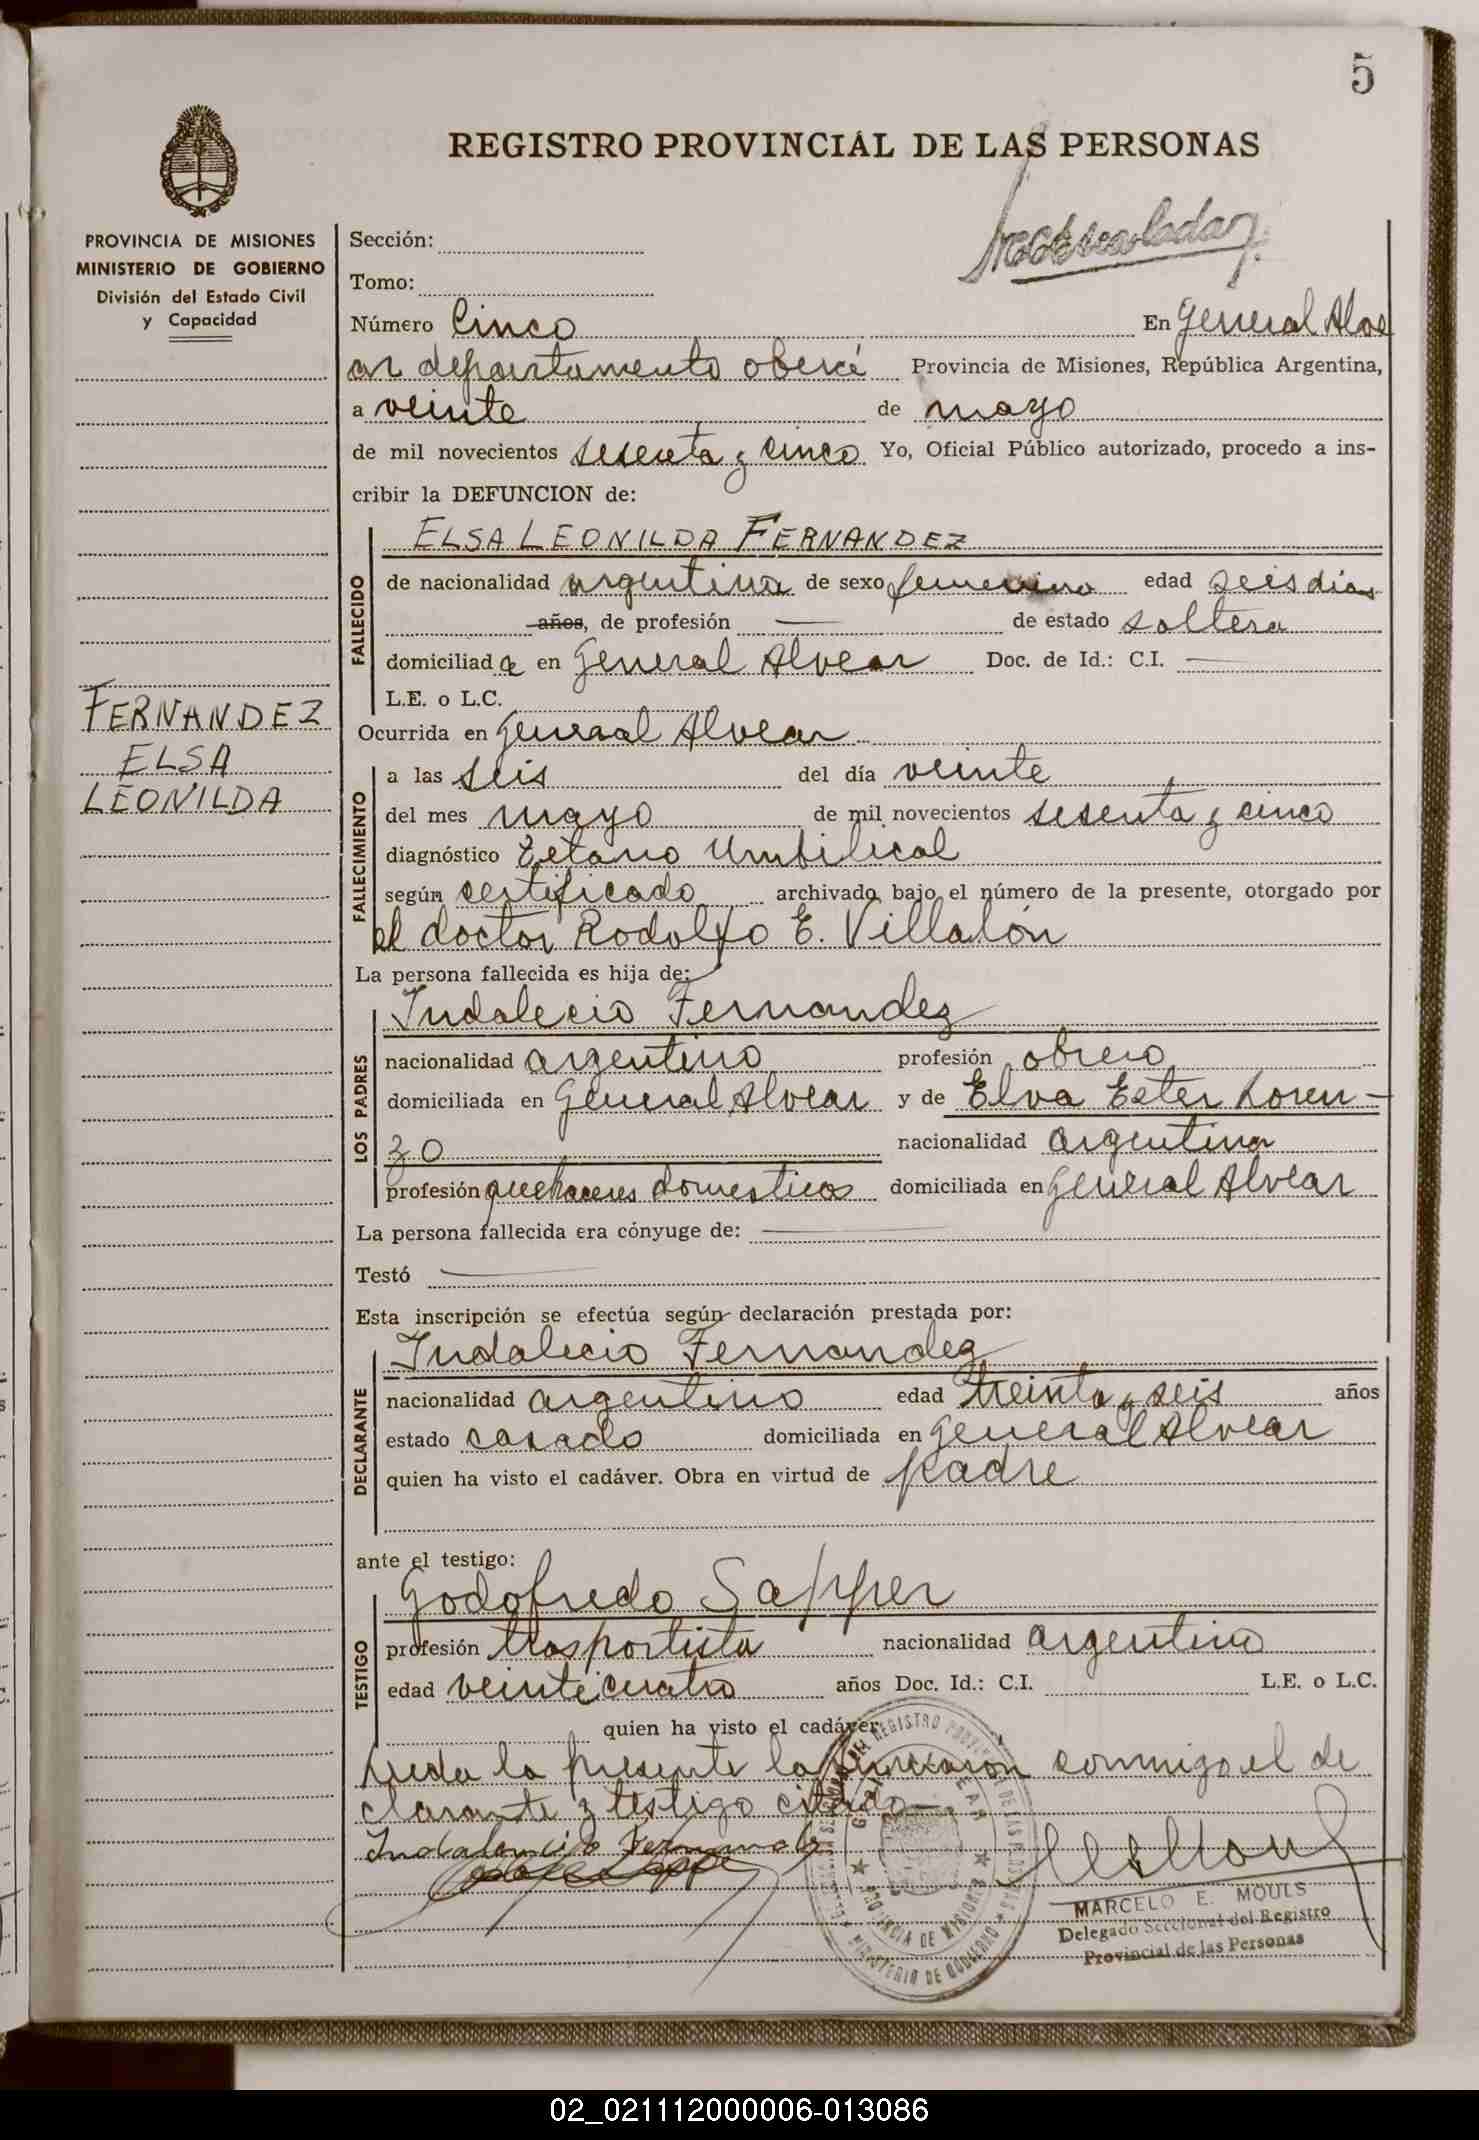 5
REGISTRO PROVINCIAL DE LAS PERSONAS
PROVINCIA DE MISIONES
MINISTERIO DE GOBIERNO
División del Estado Civil
y Capacidad
FERNANDEZ
ELSA
LEONILDA
Sección:
Tomo:
Número Cinco En General Alve
ar departamento oberá Provincia de Misiones, República Argentina,
a veinte de mayo
de mil novecientos sesenta y cinco Yo, Oficial Público autorizado, procedo a ins-
cribir la DEFUNCION de:
FALLECIDO
ELSA LEONILDA FERNANDEZ
de nacionalidad argentina de sexo femenino edad seis dias
años, de profesión — de estado soltera
domiciliad a en General Alvear Doc. de Id.: C.I. —
L.E. o L.C.
Ocurrida en General Alvear
FALLECIMIENTO
a las seis del día veinte
del mes mayo de mil novecientos sesenta y cinco
diagnóstico Tetano Umbilical
según certificado archivado bajo el número de la presente, otorgado por
el doctor Rodolfo E. Villalón
La persona fallecida es hija de:
LOS PADRES
Indalecio Fernandez
nacionalidad argentino profesión obrero
domiciliada en General Alvear y de Elva Ester Loren-
zo nacionalidad argentina
profesión quehaceres domesticos domiciliada en General Alvear
La persona fallecida era cónyuge de: —
Testó —
Esta inscripción se efectúa según declaración prestada por:
DECLARANTE
Indalecio Fernandez
nacionalidad argentino edad treinta y seis años
estado casado domiciliada en General Alvear
quien ha visto el cadáver. Obra en virtud de padre
ante el testigo:
TESTIGO
Godofredo Sapper
profesión trasportista nacionalidad argentino
edad veinticuatro años Doc. Id.: C.I. L.E. o L.C.
quien ha visto el cadáver
Leida la presente la firmaron conmigo el de
clarante y testigo citado—
MARCELO E. MOULS
Delegado Seccional del Registro
Provincial de las Personas
PROVINCIA DE MISIONES
MINISTERIO DE GOBIERNO
02_021112000006-013086